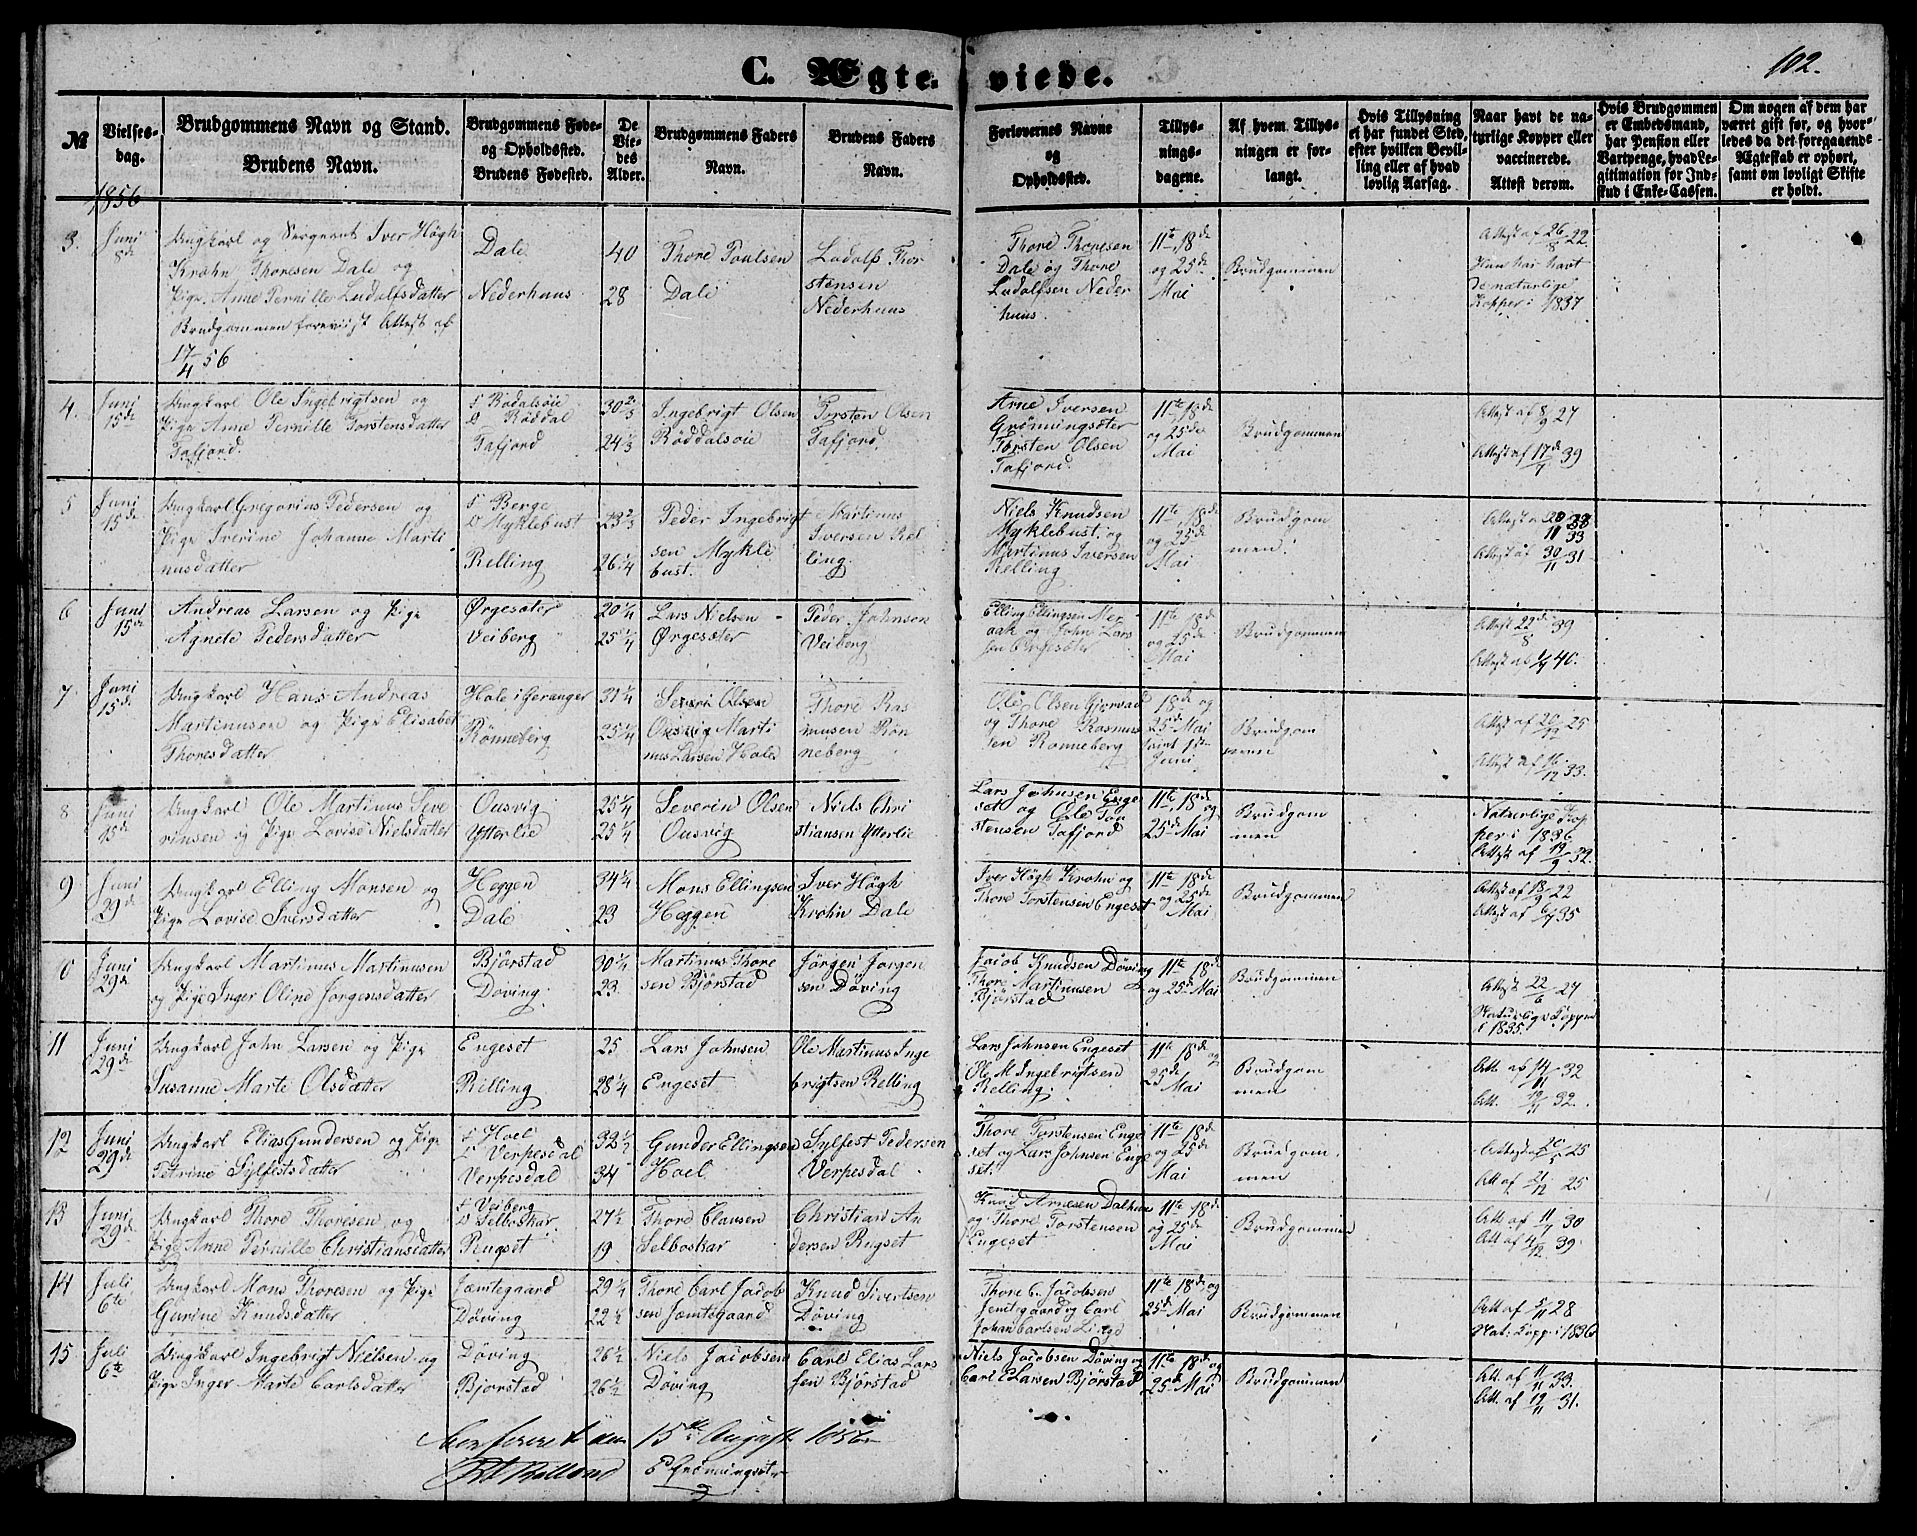 C. Ægte-viede.
102.
№
Vielses-
dag.
Brudgommens Navn og Stand.
Brudens Navn.
Brudgommens Føde-
og Opholdssted.
Brudens Fødested.
De
Vie-
des
Alder.
Brudgommens Faders
Navn.
Brudens Faders
Navn.
Forlovernes Navne
og
Opholdssted.
Tillys-
nings-
dagene.
Af hvem Tillys-
ningen er for-
langt.
Hvis Tillysning
ei har fundet Sted,
efter hvilken Bevil-
ling eller af hvad
lovlig Aarsag.
Naar havt de na-
tyrlige Kopper eller
vaccinerede.
Attest derom.
Hvis Brudgommen
er Embedsmand,
har Pension eller
Vartpenge, hvad Le-
gitimation for Ind-
skud i Enke-Cassen.
Om nogen af dem har
været gift før, og hvor-
ledes da det foregaaende
Ægteskab er ophørt,
samt om lovligt Skifte
er holdt.
1856
3.
Juni
8de
Ungkarl og Sergeant Iver Høgh
Krohn Thoresen Dale og
Pige Anne Pernille Ludolfsdatter
Brudgommen foreviist Attest af
17/4 56
Dale
Nederhuus
40
28
Thore Poulsen
Dale
Ludolf Thor
stensen
Nederhuus
Thore Thoresen
Dale og Thore
Ludolfsen Neder
huus.
11te, 18de
og 25de
Mai
Brudgommen
Attest af 26/8 22
Hun har havt
de naturlige
Kopper i 1837
4.
Juni
15de
Ungkarl Ole Ingebrigtsen og
Pige Anne Pernille Torstensdatter
Tafjord.
F Rødalsøie
O Røddal
Tafjord
30 2/3
24 1/3
Ingebrigt Olsen
Røddalsøie
Torsten Olsen
Tafjord.
Arne Iversen
Grønningsæter
Torsten Olsen
Tafjord.
11te, 18de
og 25de
Mai
Brudgommen
Attest af 8/9 27
Attest af 17/1 39
5
Juni
15de
Ungkarl Gregorius Pedersen og
Pige Iverine Johanne Marti
nusdatter
F Berge
O Myklebust
Relling
23 2/3
26 1/4
Peder Ingebrigt
sen Mykle
bust.
Martinus
Iversen Rel
ling.
Niels Knudsen
Myklebust og
Martinus Iversen
Relling
11te, 18de
og 25de
Mai
Brudgom
men.
Attest af
Attest af 30/11 31
6
Juni
15de
Andreas Larsen og Pige
Agnete Pedersdatter
Ørgesæter
Veiberg
20 1/4
25 1/4
Lars Nielsen
Ørgesæter
Peder Johnsen
Veiberg
Elling Ellingsen Mer
aak og John Lars
sen Ørgesæter
11te 18de
og 25de
Mai
Brudgommen
Attest 22/8 39
Attest af 40.
7
Juni
15de
Ungkarl Hans Andreas
Martinusen og Pige Elisabet
Thoresdatter
Hole i Geranger
Rønneberg
31 1/4
25 1/4
Severi Olsen
Ousvig Marti
nus Larsen Hole
Thore Ras
musen Røn
neberg
Ole Olsen Gjørvad
og Thore Rasmus
sen Rønneberg
18de og
25de Mai
samt 1ste
Juni
Brudgom
men
Attest af 20/12 25
Attest af 16/12 33.
8
Juni
15de
Ungkarl Ole Martinus Seve
rinsen og Pige Lovise Nielsdatter
Ousvig
Ytterlie
25 1/4
25 1/4
Severin Olsen
Ousvig
Niels Chri
stiansen Ytterlie
Lars Johnsen Enge
set og Ole Tor
stensen Tafjord
11te, 18de og
25de Mai
Brudgom
men
Naturlige Kop
per i 1836
Attest af 19/9 32.
9
Juni
29de
Ungkarl Elling Monsen og
Pige Lovise Iversdatter
Heggen
Dale
34 1/4
23
Mons Ellingsen
Heggen
Iver Høgh
Krohn Dale
Iver Høgh Krohn og
Thore Torstensen Engeset
11te 18de
og 25de
Mai
Brudgommen
Attest af 13/9 22
Attest af 6/7 35
0
Juni
29de
Ungkarl Martinus Martinusen
og Pige Inger Oline Jørgensdatter
Bjørstad
Døving
30 1/4
23
Martinus Thore
sen Bjørstad
Jørgen Jørgen
sen Døving
Jacob Knudsen Døving
Thore Martinusen
Bjørstad
11te 18de
og 25de Mai
Brudgommen
Attest 22/6 27
Naturlige Kopper
i 1835.
11
Juni
29de
Ungkarl John Larsen og Pige
Susanne Marte Olsdatter
Engeset
Relling
25
28 1/4
Lars Johnsen
Engeset
Ole Martinus Inge
brigtsen Relling
Lars Johnsen Engeset
Ole M Ingebrigtsen
Relling.
11te 18de og
25de
Mai
Brudgom
men
Att. af 14/11 32
Att. 19/11 32.
12
Juni
29de
Ungkarl Elias Gundersen og Pige
Petrine Sylfestsdatter
F Hoel
O Verpesdal
Verpesdal
32 1/2
34
Gunder Ellingsen
Hoel
Sylfest Pedersen
Verpesdal
Thore Torstensen Enge
set og Lars Johnsen Enge
set.
11te 18de
og 25de
Mai
Brudgom
men
Attest af 20/5 25
Att af 21/12 25
13
Juni
29de
Ungkarl Thore Thoresen og
Pige Anne Pernille Christiansdatter
F Veiberg
O Selboskar
Rugset
27 1/2
19
Thore Clausen
Selboskar
Christian An
dersen Rugset
Knud Arnesen Dalhuus
og Thore Torstensen
Engeset
11te 18de
og 25de
Mai
Brudgommen
Att af 11/7 30
Att af 4/12 39
14
Juli
6te
Ungkarl Mons Thoresen og Pige
Gurine Knudsdatter
Jæmtegaard
Døving
29 1/4
22 1/2
Thore Carl Jacob
sen Jæmtegaard
Knud Sivertsen
Døving
Thore C. Jacobsen
Jemtegaard og Carl
Johan Carlsen Linge
11te 18de og
25de Mai
Brudgommen
Att af 5/11 28
Nat: Kopp: i 1836
15
Juli
6te
Ungkarl Ingebrigt Nielsen og
Pige Inger Marte Carlsdatter
Døving
Bjørstad
26 1/2
26 1/2
Niels Jacobsen
Døving
Carl Elias Lars
sen Bjørstad
Niels Jacobsen Døving og
Carl E Larsen Bjørstad
11te 18de og
25de Mai
Brudgommen
Att. af 11/11 33.
Att. af 19/11 31.
Confereret den 15de August 1856
E Grønningsæter